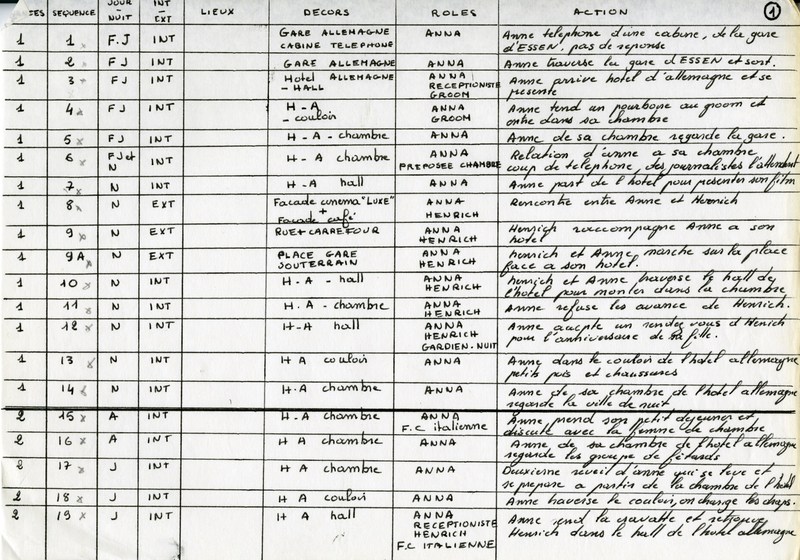 SES SEQUENCE JOUR - NUIT INT - EXT LIEUX DECORS ROLES ACTION 1
1 1 F.J INT GARE ALLEMAGNE ANNA Anne telephone d'une cabine, de la gare
CABINE TELEPHONE d'ESSEN, pas de reponse
1 2 FJ INT GARE ALLEMAGNE ANNA Anne traverse la gare d'ESSEN et sort.
1 3 FJ INT Hotel ALLEMAGNE ANNA Anne arrive hotel d'allemagne et se
- HALL RECEPTIONISTE presente
GROOM
1 4 FJ INT H - A ANNA Anne tend un pourboire au groom et
- couloir GROOM entre dans sa chambre
1 5 FJ INT H - A - chambre ANNA Anne de sa chambre regarde la gare.
1 6 FJ et INT H - A - chambre ANNA Relation d'anne a sa chambre
N PREPOSEE CHAMBRE coup de telephone, des journalistes l'attendent
1 7 N INT H - A hall ANNA Anne part de l'hotel pour presenter son film
1 8 N EXT Facade cinema "LUXE" ANNA Rencontre entre Anne et Henrich
+ HENRICH
Facade café
1 9 N EXT RUE + CARREFOUR ANNA Henrich raccompagne Anne a son
HENRICH hotel
1 9A N EXT PLACE GARE ANNA henrich et Anne, marche sur la place
SOUTERRAIN HENRICH face a son hotel.
1 10 N INT H - A - hall ANNA henrich et Anne traverse le hall de
HENRICH l'hotel pour monter dans la chambre
1 11 N INT H. A - chambre ANNA Anne refuse les avance de Henrich.
HENRICH
1 12 N INT H-A hall ANNA Anne accepte un rendez vous d'Henrich
HENRICH pour l'anniversaire de sa fille.
GARDIEN. NUIT
1 13 N INT H A couloir ANNA Anne dans le couloir de l'hotel allemagne
petits pois et chaussures
1 14 N INT H.A chambre ANNA Anne de sa chambre de l'hotel allemagne
regarde la ville de nuit
2 15 A INT H - A chambre ANNA Anne prend son petit dejeuner et
F.C italienne discute avec la femme de chambre
2 16 A INT H A chambre ANNA Anne de sa chambre de l'hotel allemagne
regarde les groupe de fétards
2 17 J INT H A chambre ANNA Deuxieme reveil d'anne qui se leve et
se prepare a partir de la chambre de l'hotel
2 18 J INT H A couloir ANNA Anne traverse le couloir, on change les draps.
2 19 J INT H A hall ANNA Anne rend la cravatte et retrouve
RECEPTIONISTE Henrich dans le hall de l'hotel allemagne
HENRICH
F.C ITALIENNE